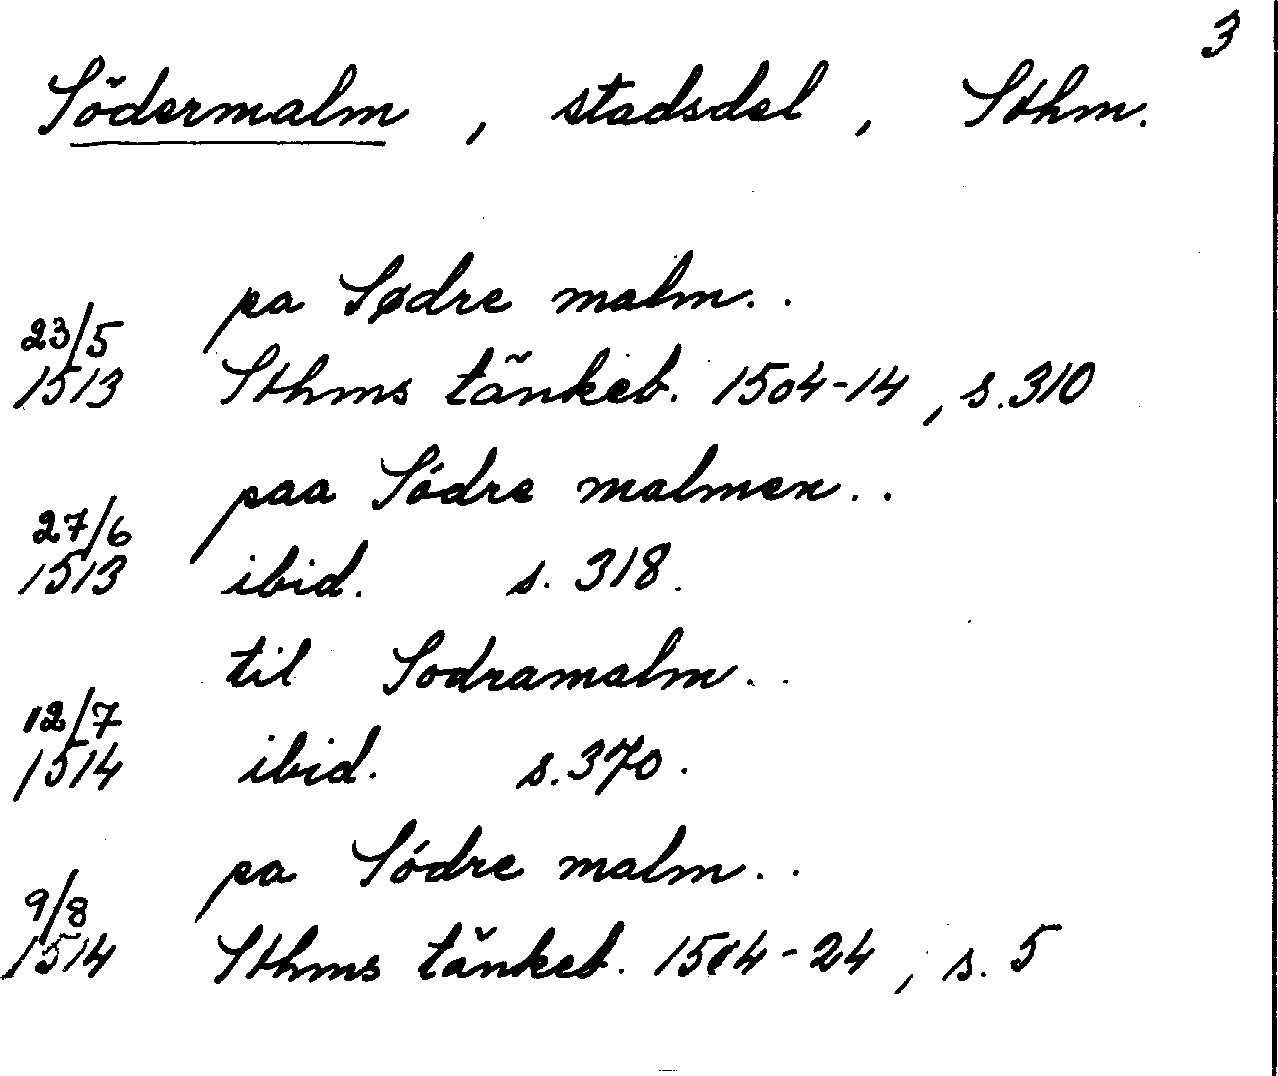 3
Södermalm, stadsdel, Sthm.
pa Sødre malm..
23/5
1513 Sthms tänkeb. 1504-14, s. 310
paa Södre malmen..
27/6
1513 ibid. s. 318.
til Sodramalm..
12/7
1514 ibid. s. 370.
pa Södre malm..
9/8
1514 Sthms tänkeb. 1514-24, s. 5